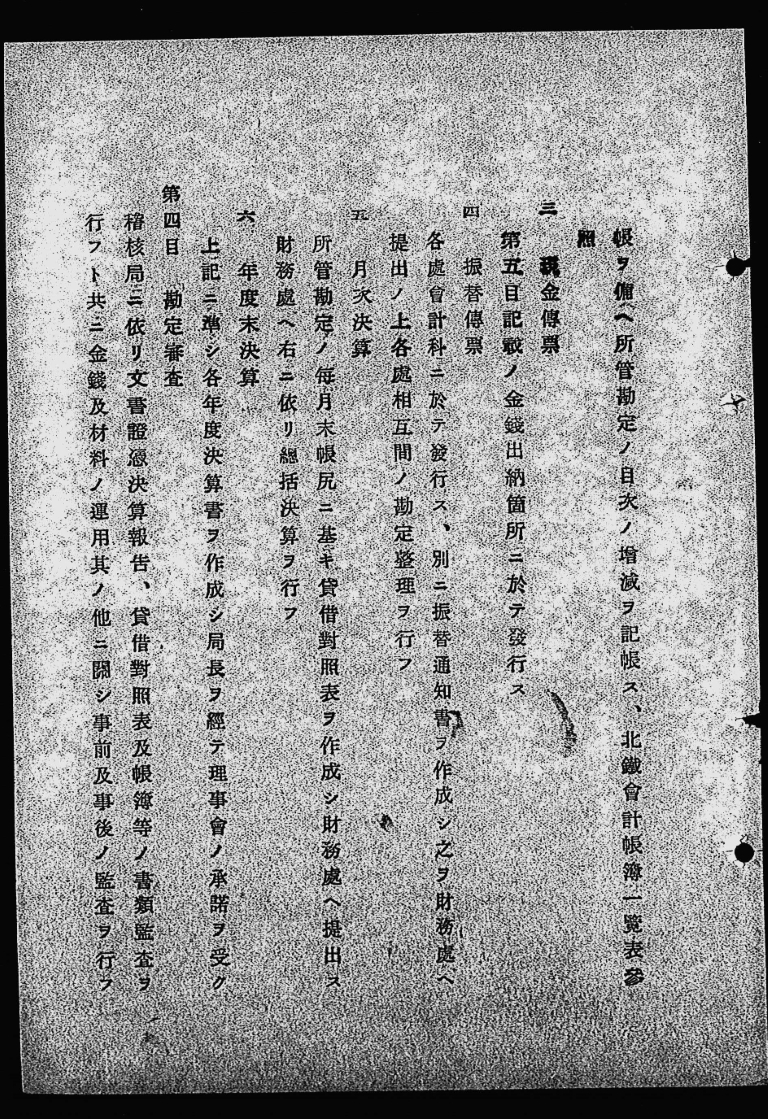 帳ヲ備ヘ所管勘定ノ目次ノ增減ヲ記帳ス、北鐵會計帳簿一覽表參
照
三　現金傳票
第五目記載ノ金錢出納箇所ニ於テ發行ス
四　振替傳票
各處會計科ニ於テ發行ス、別ニ振替通知書ヲ作成シ之ヲ財務處ヘ
提出ノ上各處相互間ノ勘定整理ヲ行フ
五　月次決算
所管勘定ノ每月末帳尻ニ基キ貸借對照表ヲ作成シ財務處ヘ提出ス
財務處ヘ右ニ依リ總括決算ヲ行フ
六　年度末決算
上記ニ準シ各年度決算書ヲ作成シ局長ヲ經テ理事會ノ承諾ヲ受ク
第四目　勘定審査
稽核局ニ依リ文書證憑決算報告、貸借對照表及帳簿等ノ書類監査ヲ
行フト共ニ金錢及材料ノ運用其ノ他ニ關シ事前及事後ノ監査ヲ行フ